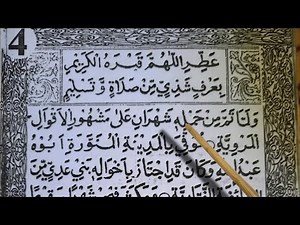 4
عَطِّرِ اللّٰهُمَّ قَبْرَهُ الْكَرِيْمْ
بِعَرْفٍ شَذِيٍّ مِنْ صَلَاةٍ وَتَسْلِيْمْ
وَلَمَّا تَمَّ مِنْ حَمْلِهِ شَهْرَانِ عَلَى مَشْهُورِ الْأَقْوَالِ
الْمَرْوِيَّةِ تُوُفِّيَ بِالْمَدِيْنَةِ الْمُنَوَّرَةِ أَبُوهُ
عَبْدُ اللّٰهِ وَكَانَ قَدِ اجْتَازَ بِأَخْوَالِهِ بَنِي عَدِيٍّ مِنَ